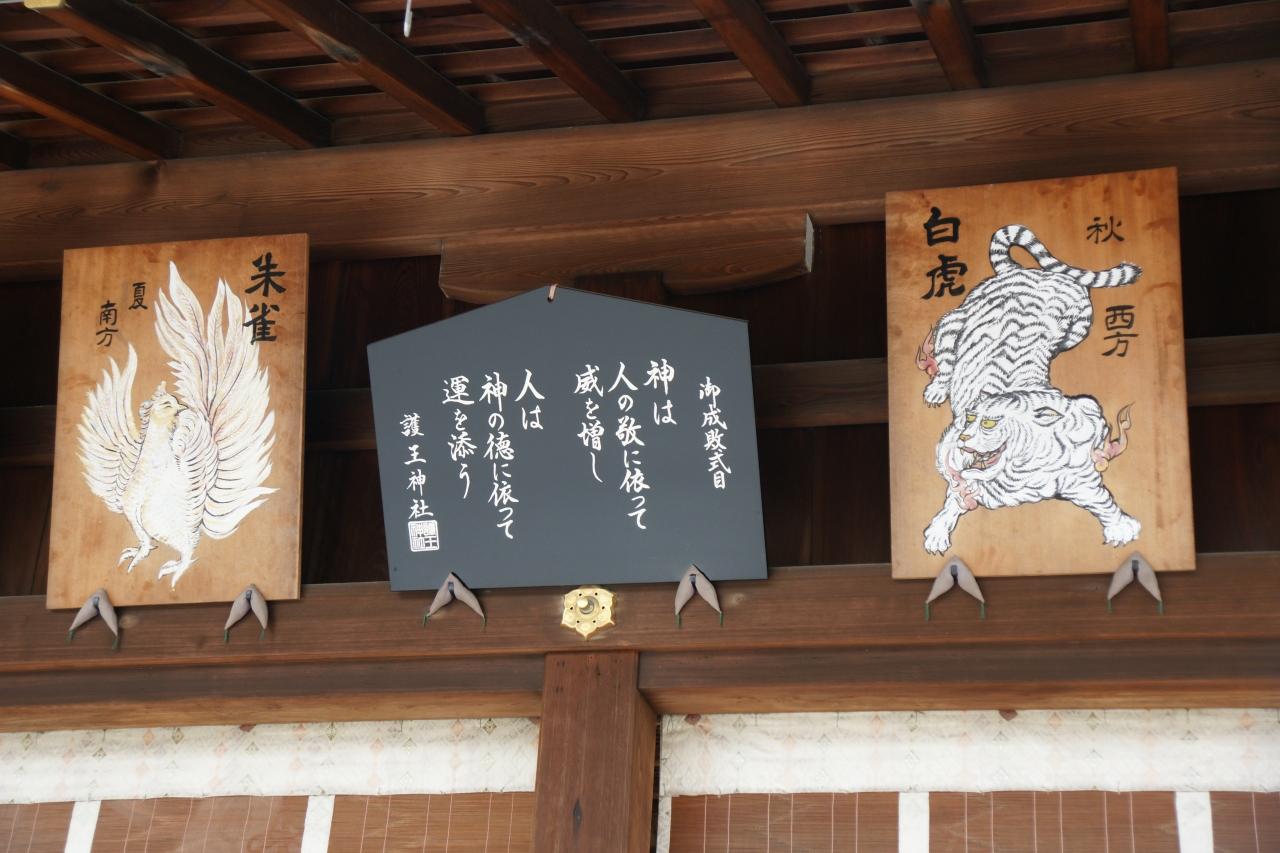 朱雀
夏
南方
御成敗式目
神は
人の敬に依って
威を増し
人は
神の徳に依って
運を添う
護王神社
白虎
秋
西方